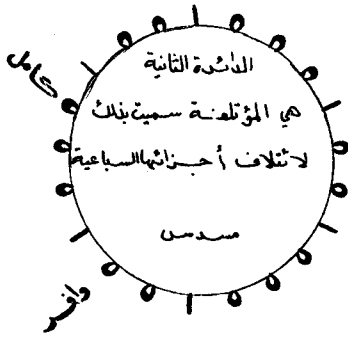 الدائرة الثانية
هي المؤتلفة سميت بذلك
لائتلاف أجزائها السباعية
مسدس
كامل
وافر